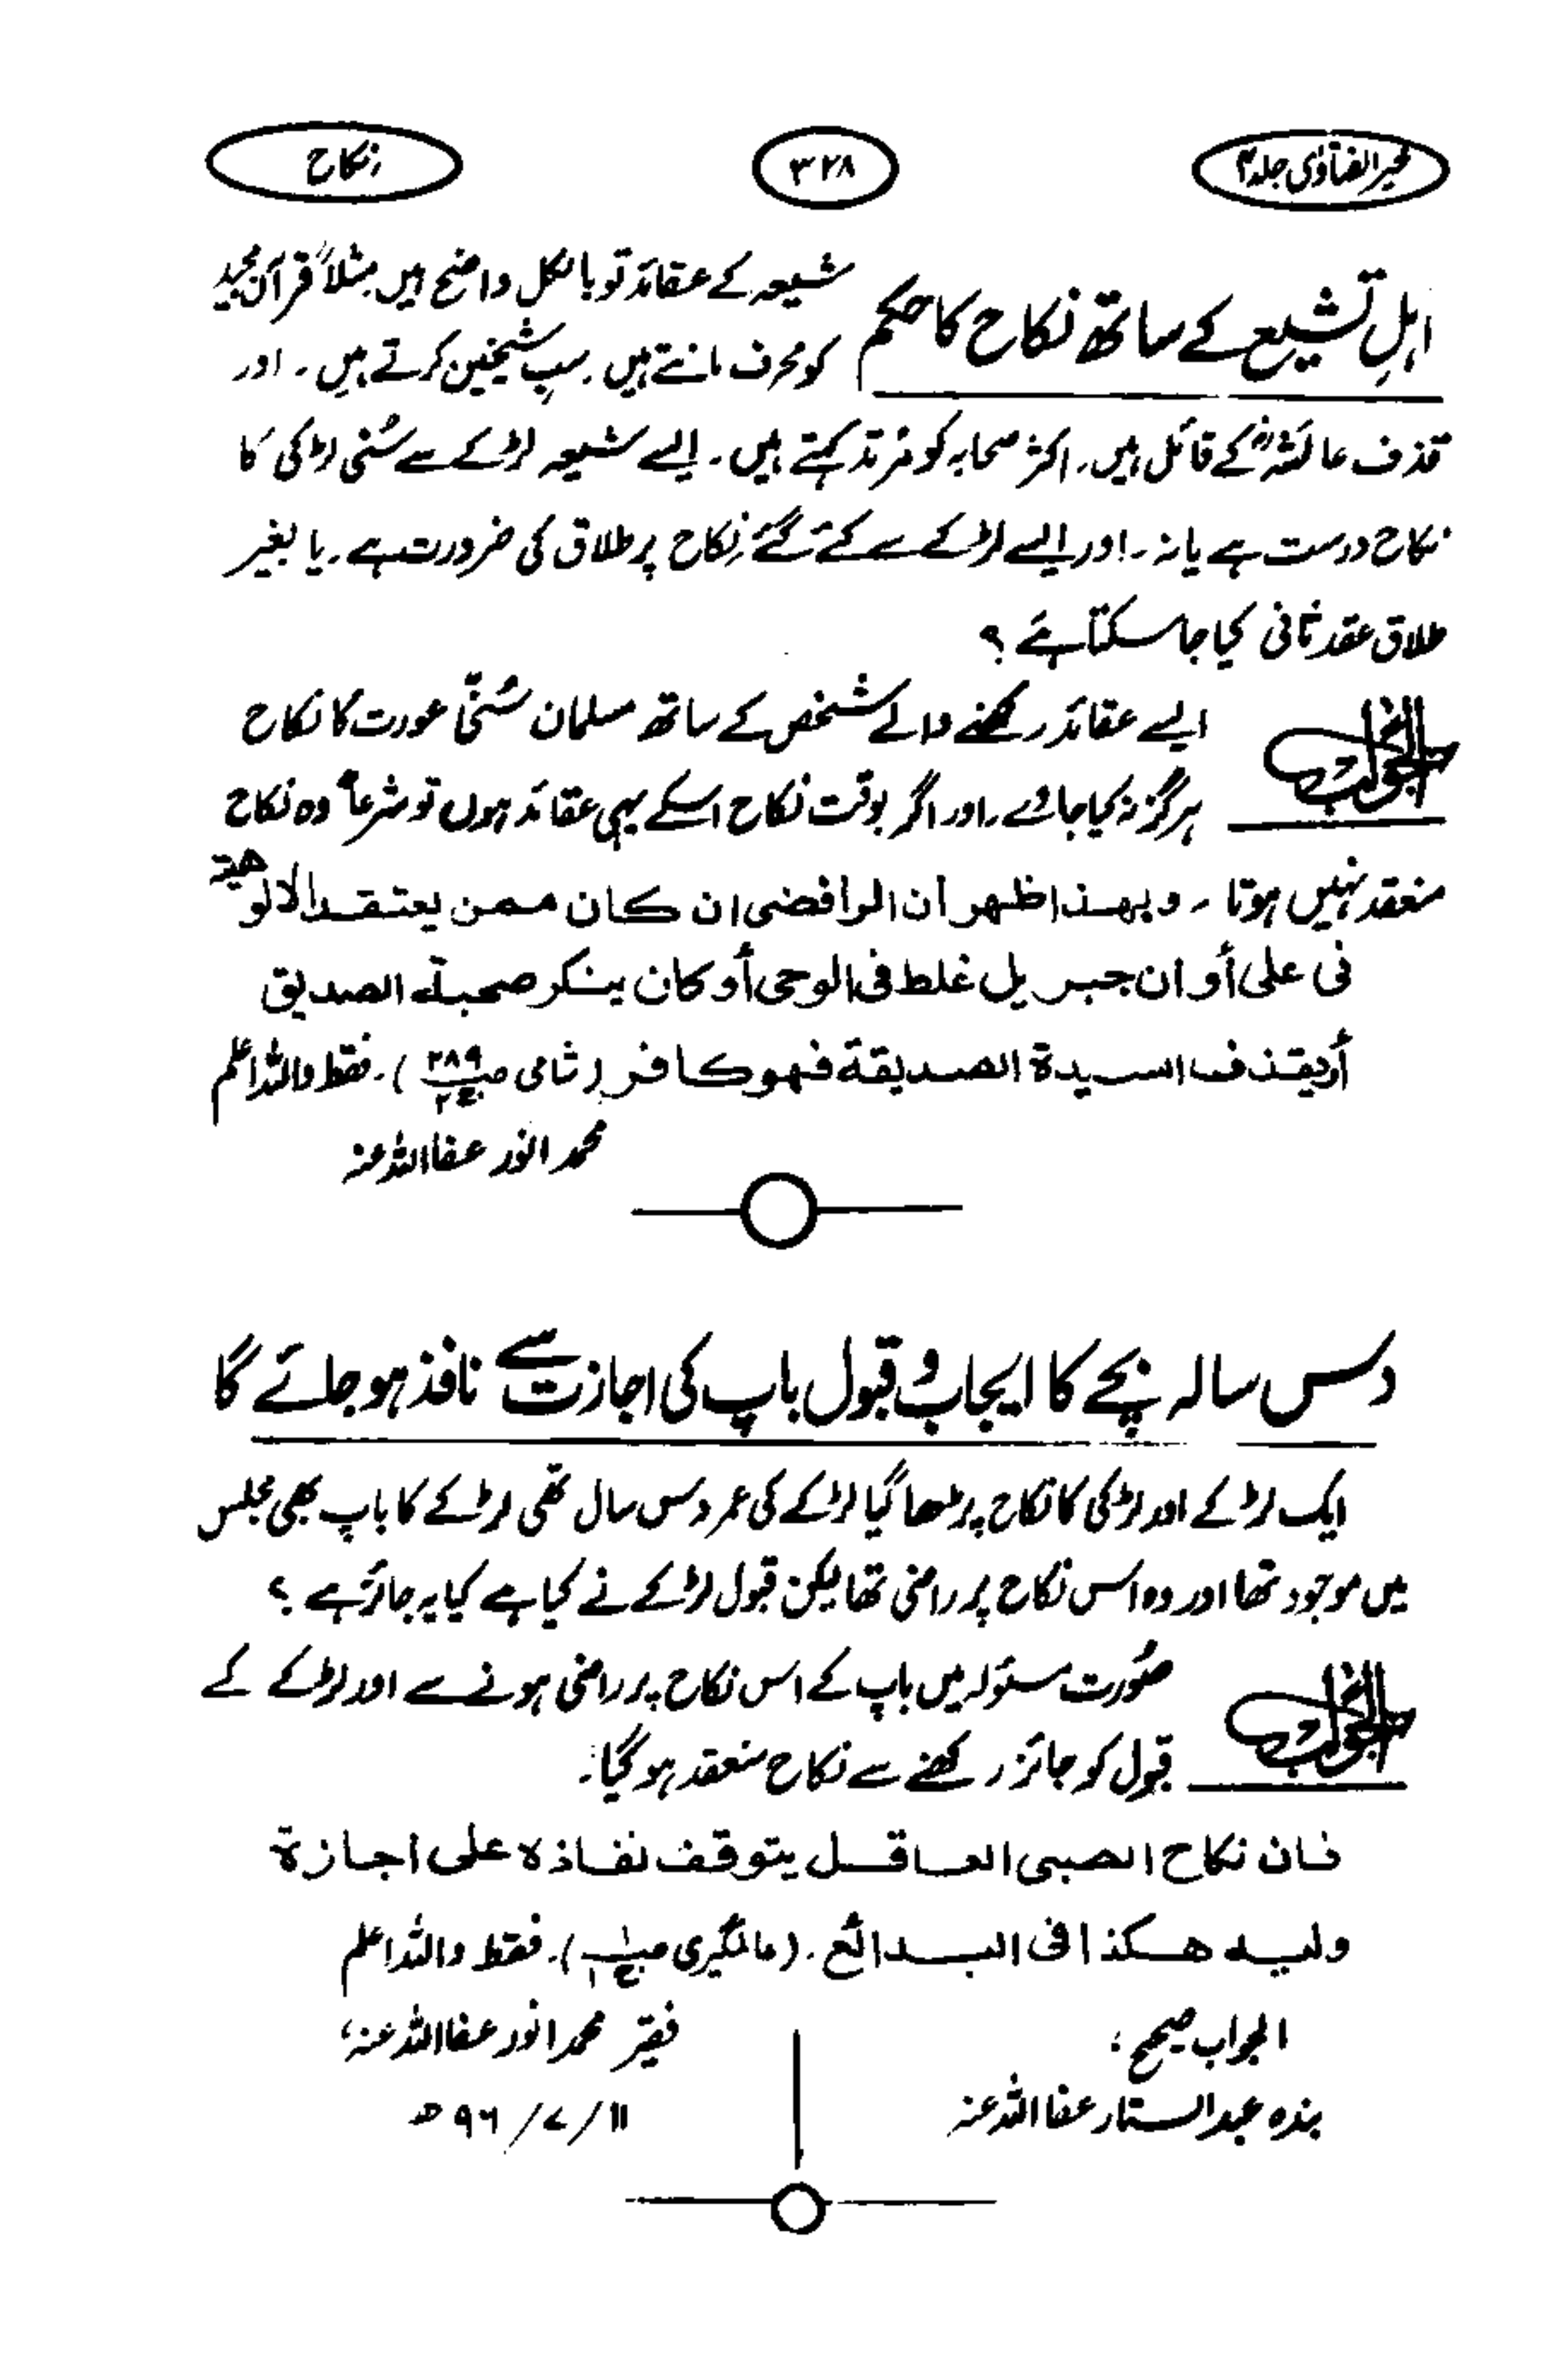 خیر الفتاوٰی جلد ۴
۳۲۸
نکاح
اہلِ تشیع کے ساتھ نکاح کا حکم
شیعہ کے عقائد تو بالکل واضح ہیں مثلاً قرآن مجید
کو محرف مانتے ہیں ۔ سبِ شیخین کرتے ہیں ۔ اور
قذف عائشہؓ کے قائل ہیں ۔ اکثر صحابہ کو مرتد کہتے ہیں ۔ ایسے شیعہ لڑکے سے سُنی لڑکی کا
نکاح درست ہے یا نہ ۔ اور ایسے لڑکے سے کئے گئے نکاح پر طلاق کی ضرورت ہے ۔ یا بغیر
طلاق عقد ثانی کیا جا سکتا ہے ؟
الجواب
ایسے عقائد رکھنے والے شخص کے ساتھ مسلمان سُنّی عورت کا نکاح
ہرگز نہ کیا جاوے ۔ اور اگر بوقت نکاح اسکے یہی عقائد ہوں تو شرعاً وہ نکاح
منعقد نہیں ہوتا ۔ وبهذا ظهر أن الرافضی ان کان ممن یعتقد الالوهیة
فی علی أو ان جبریل غلط فی الوحی أو کان ینکر صحبة الصدیق
أو یقذف السیدة الصدیقة فهو کافر (شامی ص۲۸۹ ج۲) ۔ فقط واللہ اعلم
محمد انور عفا اللہ عنہ
دس سالہ بچے کا ایجاب و قبول باپ کی اجازت سے نافذ ہو جائے گا
ایک لڑکے اور لڑکی کا نکاح پڑھا گیا لڑکے کی عمر دس سال تھی لڑکے کا باپ بھی مجلس
میں موجود تھا اور وہ اس نکاح پر راضی تھا لیکن قبول لڑکے نے کیا ہے کیا یہ جائز ہے ؟
الجواب
صُورت مسئولہ میں باپ کے اس نکاح پر راضی ہونے سے اور لڑکے کے
قبول کو جائز رکھنے سے نکاح منعقد ہو گیا ۔
فان نکاح الصبی العاقل یتوقف نفاذه علی اجازة
ولیه هکذا فی البدائع ۔ (عالمگیری ج۱) ۔ فقط واللہ اعلم
الجواب صحیح :
فقیر محمد انور عفا اللہ عنہ ،
بندہ عبدالستار عفا اللہ عنہ
۱۱ / ۷ / ۹۶ ھ